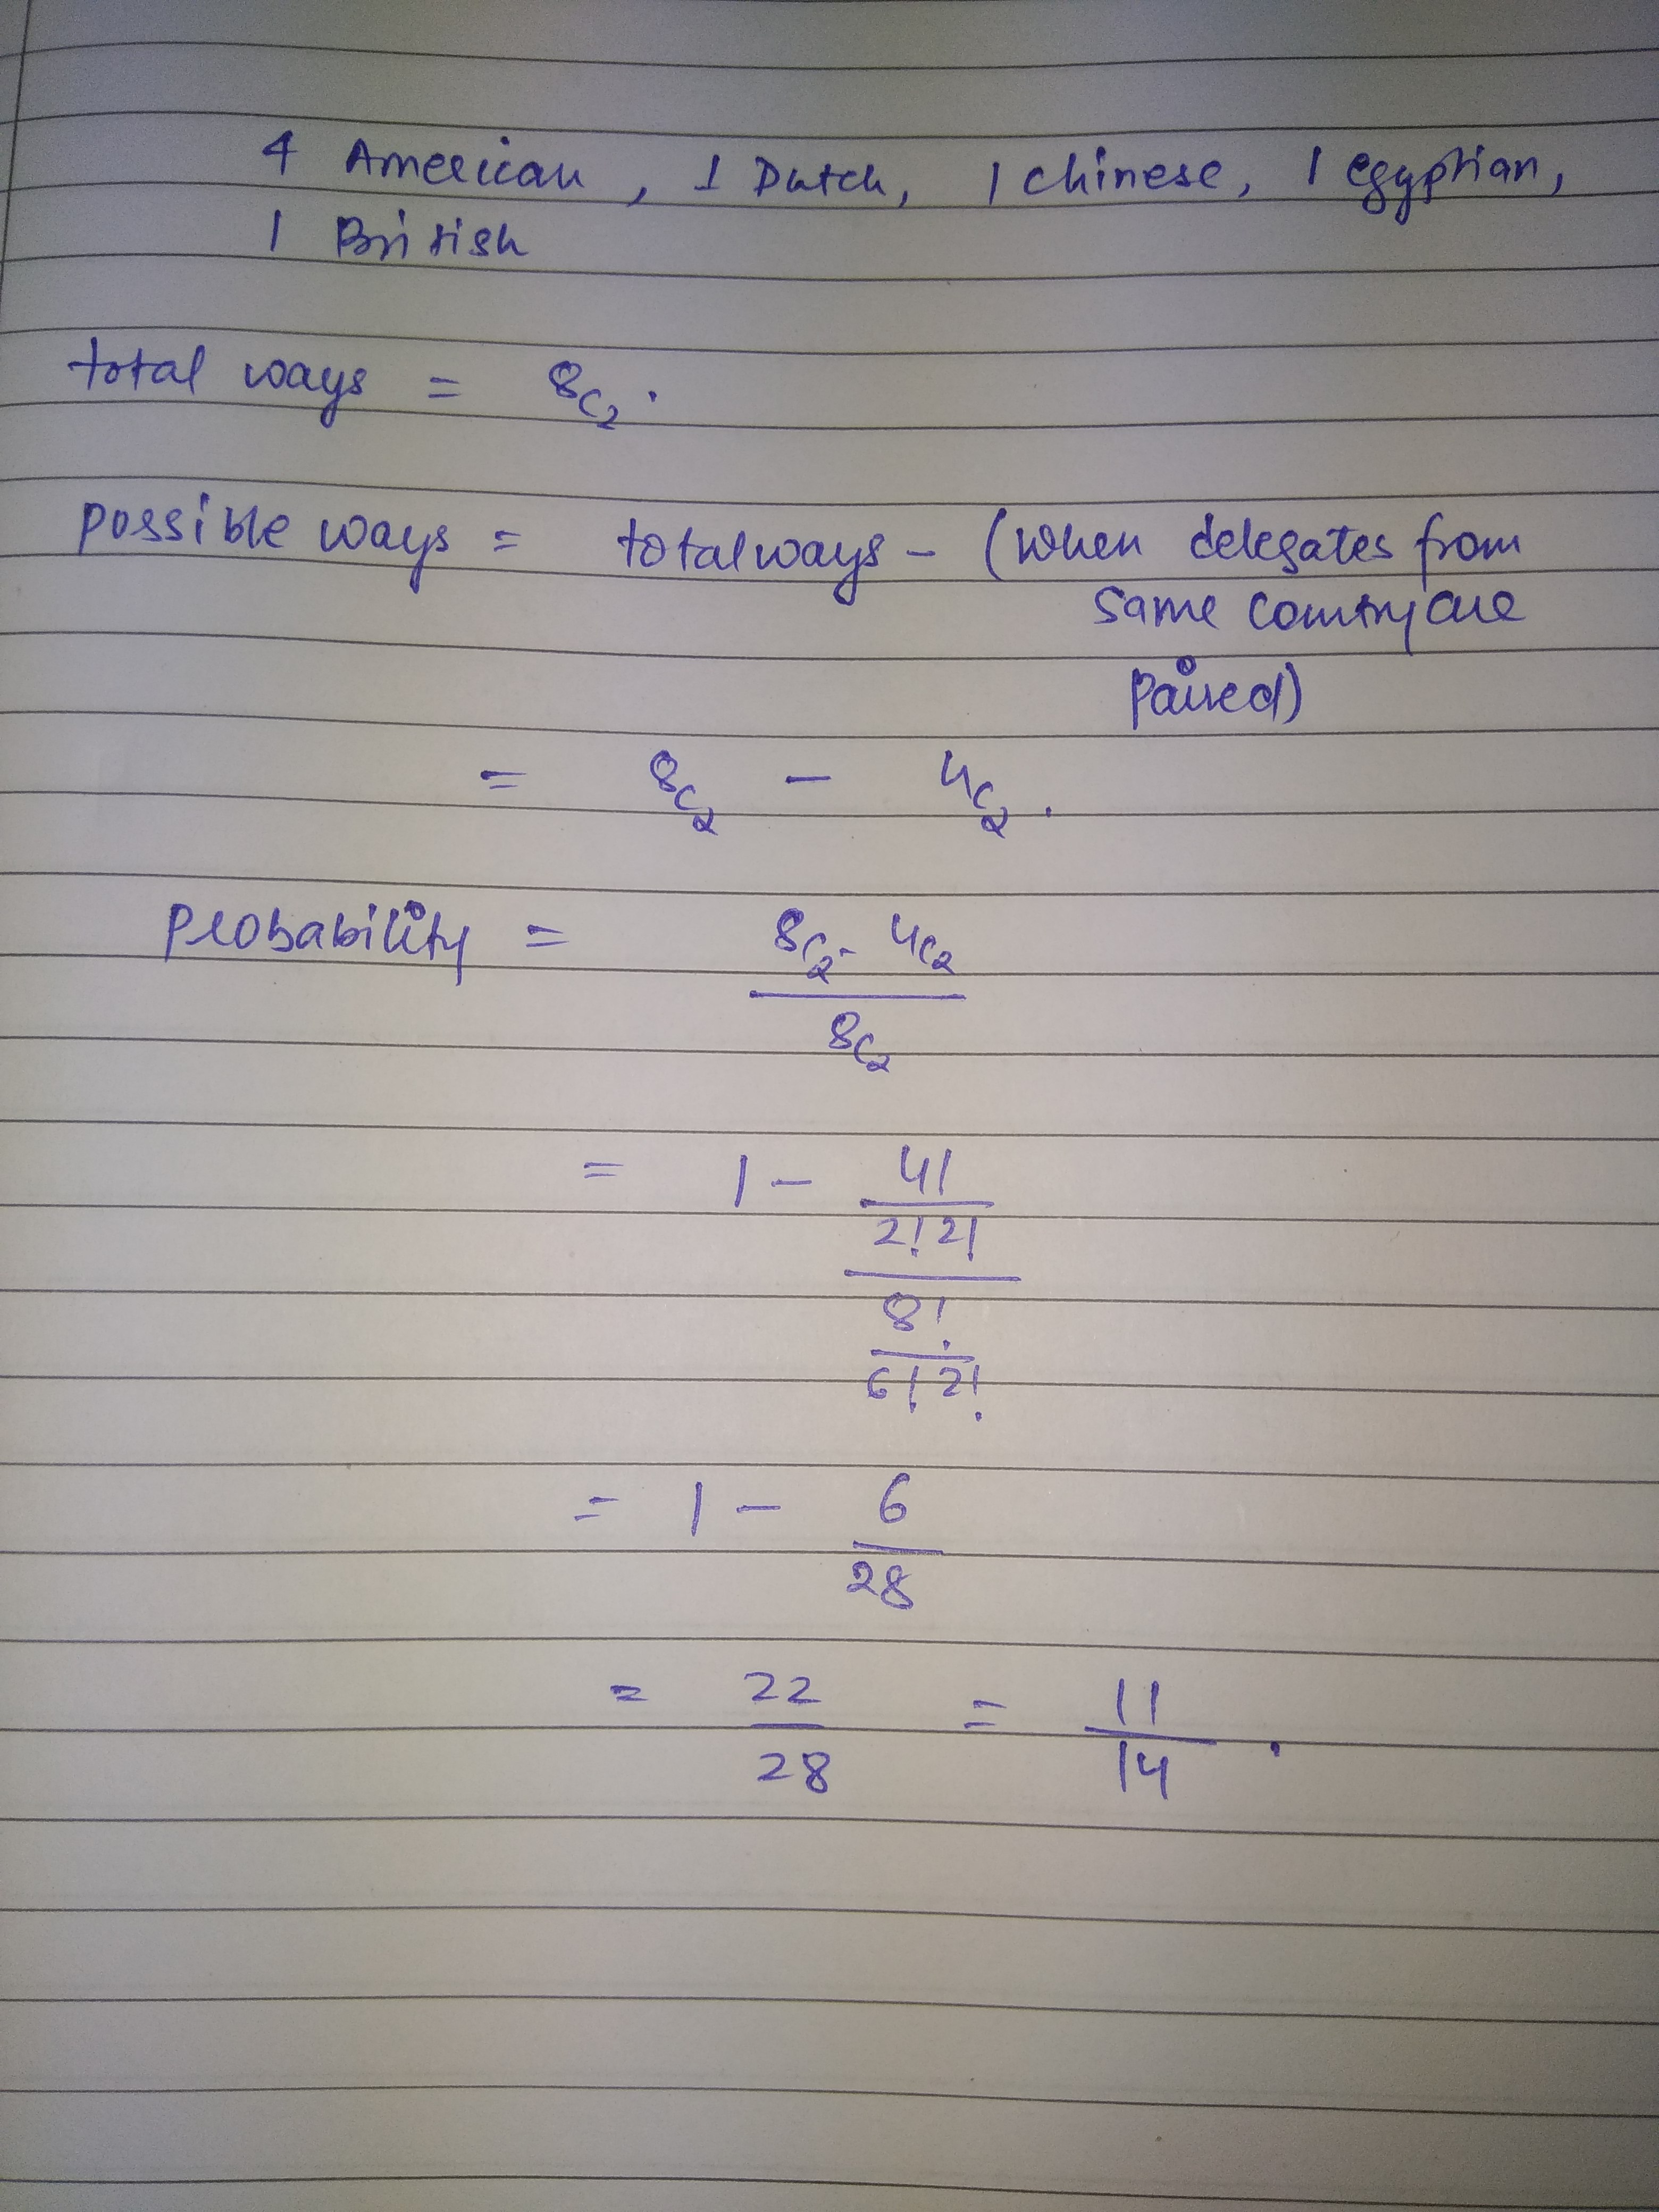 4 American, 1 Dutch, 1 chinese, 1 egyptian,
1 British
total ways = 8C2.
possible ways = total ways - (when delegates from
same country are
paired)
= 8C2 - 4C2.
probability = 8C2 - 4C2
8C2
= 1 - 4!
2!2!
8!
6!2!
= 1 - 6
28
= 22 = 11
28 14.